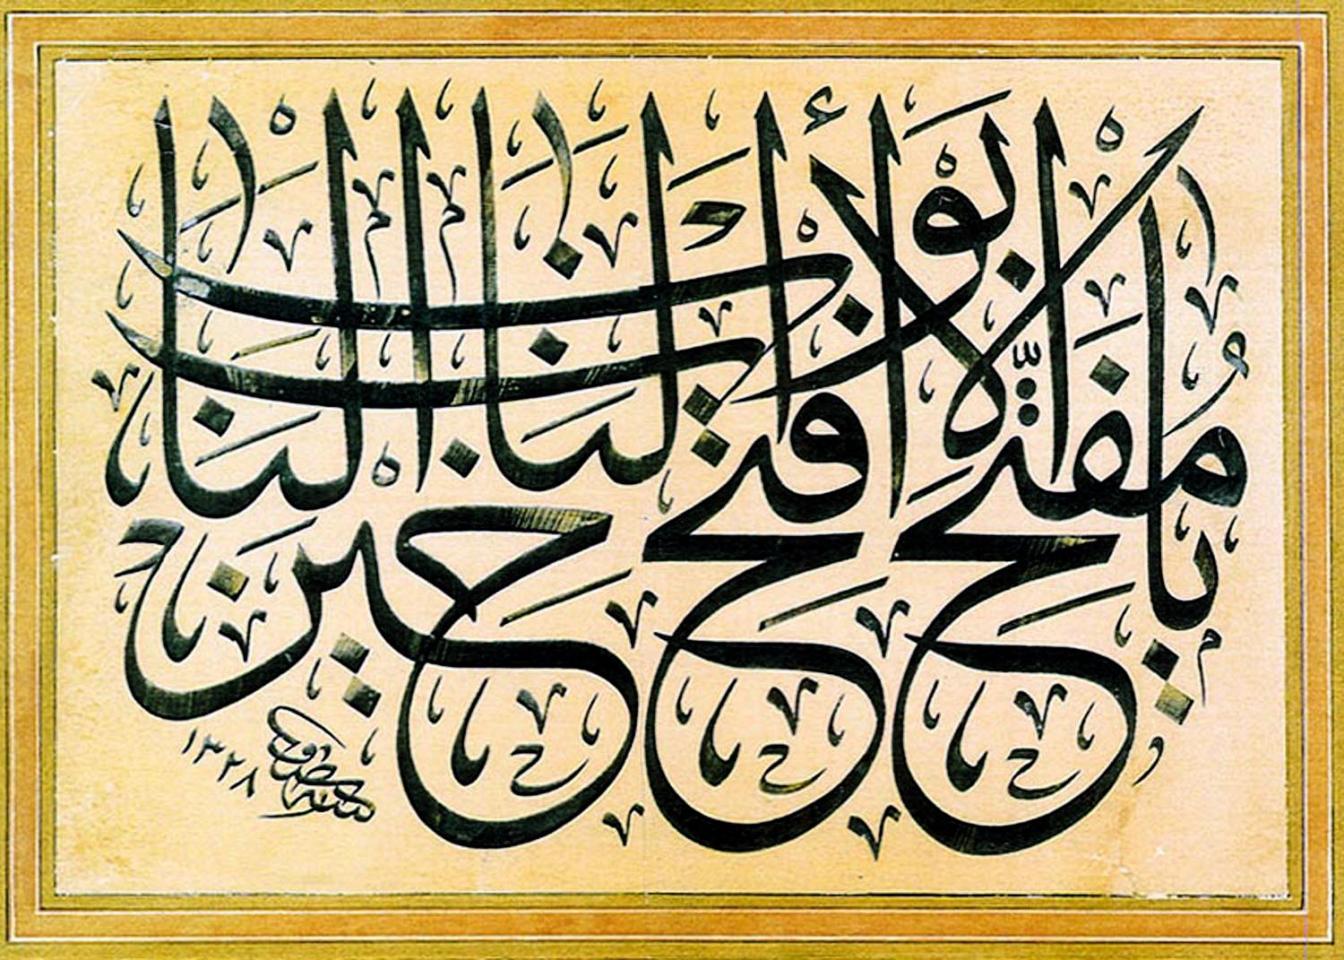 يا مفتح الأبواب افتح لنا خير الباب
١٣٢٨